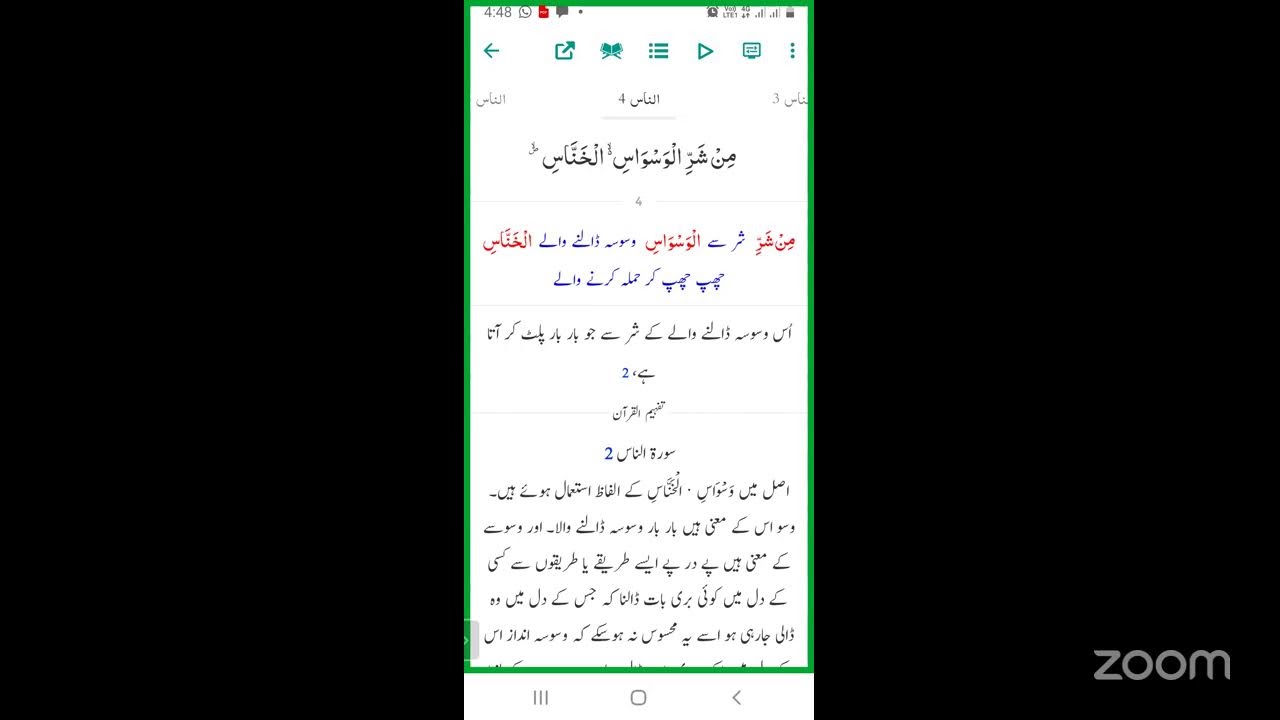 4:48
الناس
الناس 4
ناس 3
مِنْ شَرِّ الْوَسْوَاسِ ۙ۬ الْخَنَّاسِ ۪ۙ
4
مِنْ شَرِّ شر سے الْوَسْوَاسِ وسوسہ ڈالنے والے الْخَنَّاسِ
چھپ چھپ کر حملہ کرنے والے
اُس وسوسہ ڈالنے والے کے شر سے جو بار بار پلٹ کر آتا
ہے، 2
تفہیم القرآن
سورۃ الناس 2
اصل میں وَسْوَاسِ ۰ الْخَنَّاسِ کے الفاظ استعمال ہوئے ہیں۔
وسو اس کے معنی ہیں بار بار وسوسہ ڈالنے والا۔ اور وسوسے
کے معنی ہیں پے در پے ایسے طریقے یا طریقوں سے کسی
کے دل میں کوئی بری بات ڈالنا کہ جس کے دل میں وہ
ڈالی جارہی ہو اسے یہ محسوس نہ ہوسکے کہ وسوسہ انداز اس
zoom